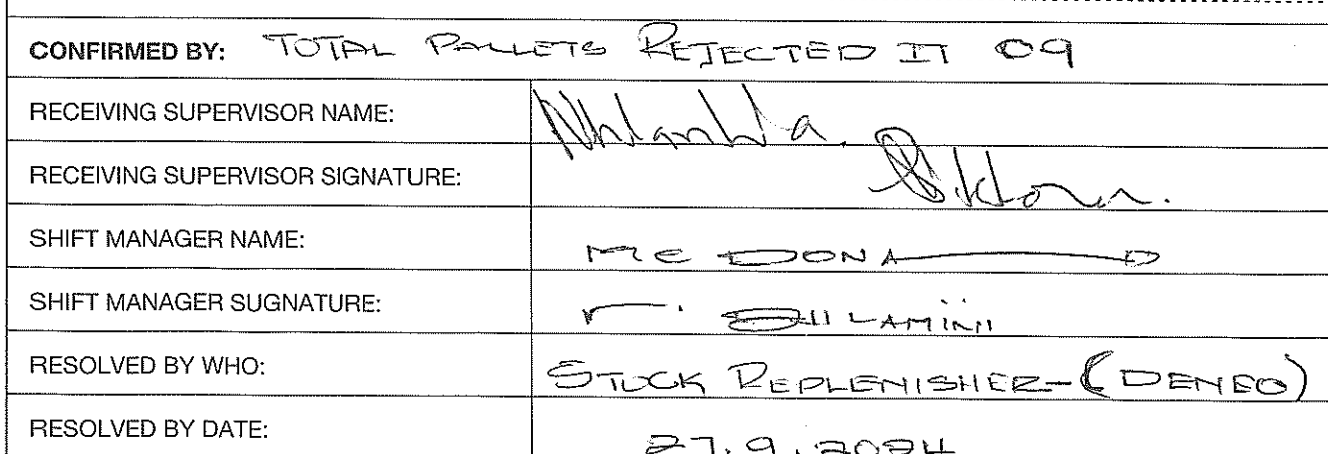 CONFIRMED BY: TOTAL PALLETS REJECTED IT 09
RECEIVING SUPERVISOR NAME: Nhlanhla.
RECEIVING SUPERVISOR SIGNATURE:
SHIFT MANAGER NAME: MC DONALD
SHIFT MANAGER SUGNATURE:
RESOLVED BY WHO: STOCK REPLENISHER - (DENEO)
RESOLVED BY DATE: 27.9.2024